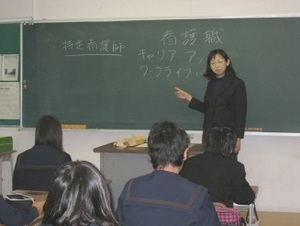 特定看護師
看護職
キャリア ア
ワークライフ